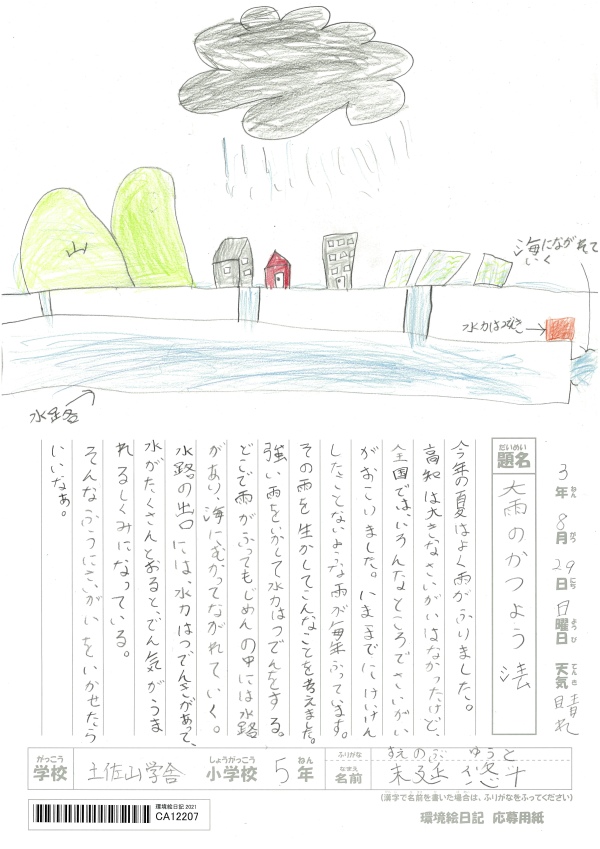 山
海にながれて
いく
水力はつでんき
水路
3年 8月 29日 日曜日 天気 晴れ
ねん がつ にち ようび てんき
だいめい
題名 大雨のかつよう法
今年の夏はよく雨がふりました。
高知は大きなさいがいはなかったけど、
全国では、いろんなところでさいがい
がおこりました。いままでにけいけん
したことないような雨が毎年ふっています。
その雨を生かしてこんなことを考えました。
強い雨をいかして水力はつでんをする。
どこで雨がふってもじめんの中には水路
があり、海にむかってながれていく。
水路の出口には、水力はつでんきがあって、
水がたくさんとおると、でん気がうま
れるしくみになっている。
そんなふうにさいがいをいかせたら
いいなぁ。
がっこう しょうがっこう ねん ふりがな すえのぶ ゆうと
学校 土佐山学舎 小学校 5年 なまえ 名前 末延 悠斗
(漢字で名前を書いた場合は、ふりがなをふってください)
環境絵日記 2021
CA12207
環境絵日記 応募用紙